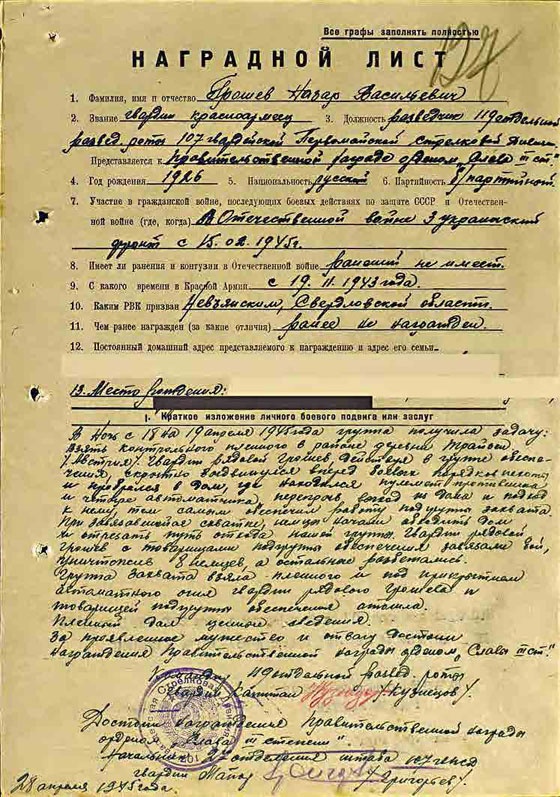 Все графы заполнять полностью
127
НАГРАДНОЙ ЛИСТ
1. Фамилия, имя и отчество Грошев Назар Васильевич
2. Звание гвардии красноармеец 3. Должность разведчик 119 отдельной
развед. роты 107 гвардейской Первомайской стрелковой
Представляется к правительственной награде орденом „Слава III ст."
4. Год рождения 1926 5. Национальность русский 6. Партийность б/партийный
7. Участие в гражданской войне, последующих боевых действиях по защите СССР и Отечествен-
ной войне (где, когда) В Отечественной войне 3 украинский
фронт с 15.02.1945г.
8. Имеет ли ранения и контузии в Отечественной войне ранений не имеет.
9. С какого времени в Красной Армии с 19.11.1943 года.
10. Каким РВК призван Невьянским, Свердловской области.
11. Чем ранее награжден (за какие отличия) ранее не награжден.
12. Постоянный домашний адрес представляемого к награждению и адрес его семьи
13. Место рождения:
I. Краткое изложение личного боевого подвига или заслуг
В ночь с 18 на 19 апреля 1945 года группа получила задачу:
взять контрольного пленного в районе деревни Трайсы
/Австрия/. Гвардии рядовой Грошев, действуя в группе обеспе-
чения, скрытно продвинулся вперед боевых порядков пехоты
и пробрался в дом, где находился пулемет противника
и четыре автоматчика, перекрыв выход из дома и подход
к нему, тем самым обеспечил работу подгруппы захвата.
При завязавшейся схватке, немцы начали обходить дом
и отрезать путь отхода нашей группы. Гвардии рядовой
Грошев с товарищами подгруппы обеспечения завязали бой,
уничтожив 8 немцев, а остальные разбежались.
Группа захвата взяла пленного и под прикрытием
автоматного огня гвардии рядового Грошева и
товарищей подгруппы обеспечения отошла.
Пленный дал ценные сведения.
За проявленное мужество и отвагу достоин
награждения Правительственной награды орденом „Слава III ст."
Командир 119 отдельной развед. роты
гвардии капитан /Кузнецов/
Достоин награждения Правительственной награды
орденом „Слава III степени"
Начальник 2 отделения штаба 107 гвсд
гвардии майор /Григорьев/.
28 апреля 1945 года.